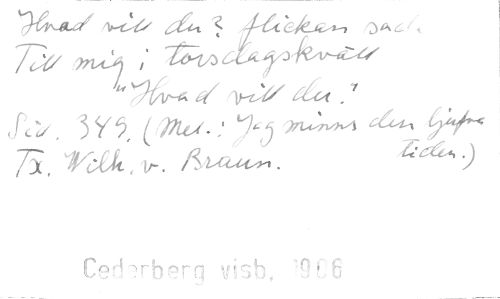 Hvad vill du? flickan sad.
Till mig i torsdagskväll
"Hvad vill du."
Sid. 349. (Mel.: Jag minns den ljufva
tiden.)
Tx. Wilh. v. Braun.
Cederberg visb. 1906